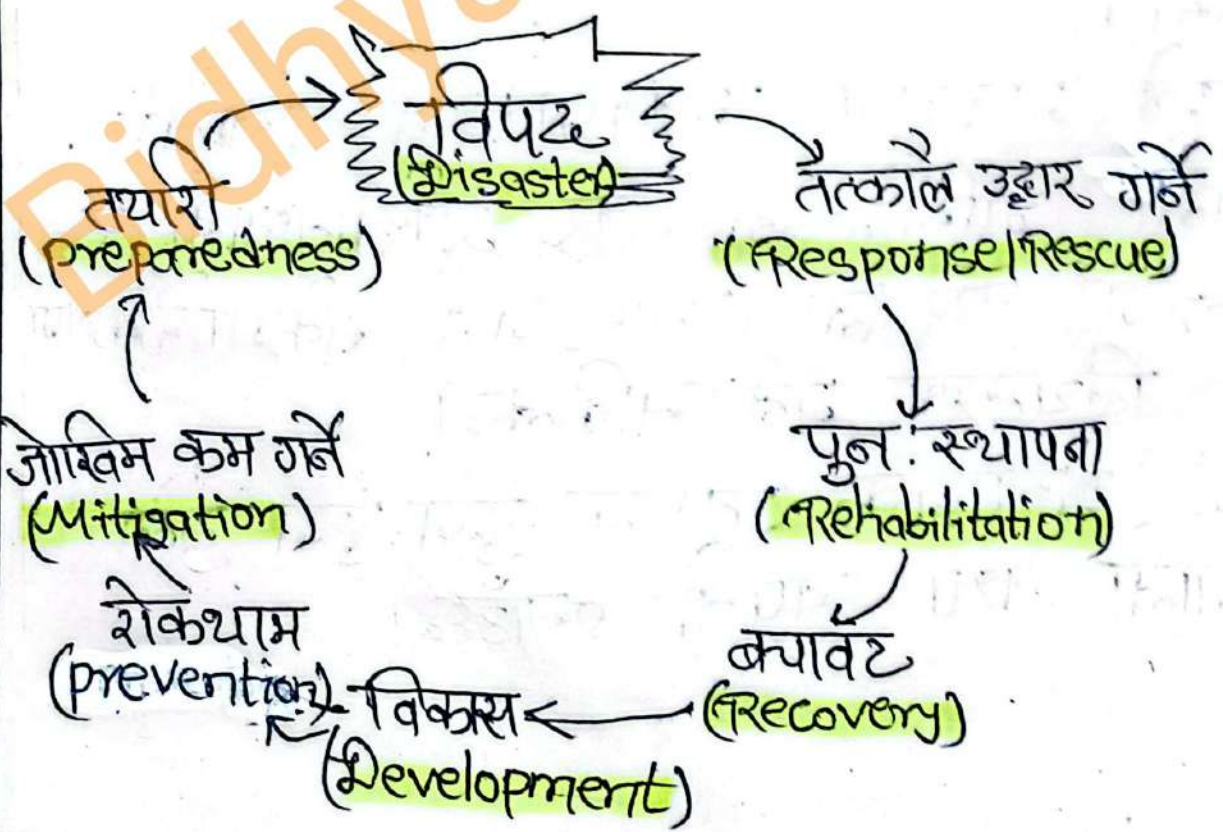 Bidhy
विपद
(Disaster)
तत्काल उद्दार गर्ने
(Response/Rescue)
पुन: स्थापना
(Rehabilitation)
बचावट
(Recovery)
विकास
(Development)
रोकथाम
(prevention)
जोखिम कम गर्ने
(Mitigation)
तयारी
(preparedness)